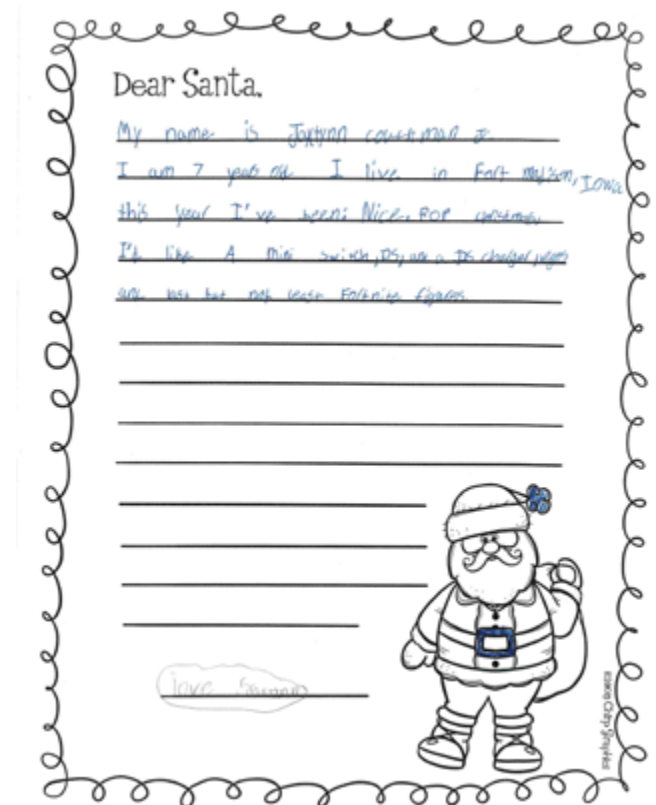 Dear Santa,
My name is Jaylynn couchman Jr.
I am 7 years old I live in Fort Madison, Iowa
this year I've been: Nice. FOR christmas
I'd like A mini switch, DS, and a DS charger,
and last but not least Fortnite figures
love